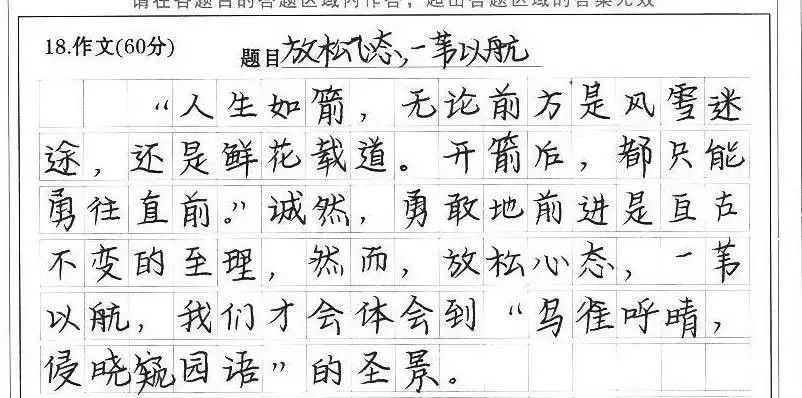 请在各题目的答题区域内作答，超出答题区域的答案无效
18.作文(60分) 题目放松心态,一苇以航
“人生如箭，无论前方是风雪迷
途，还是鲜花载道。开箭后，都只能
勇往直前。”诚然，勇敢地前进是亘古
不变的至理，然而，放松心态，一苇
以航，我们才会体会到“鸟雀呼晴，
侵晓窥园语”的圣景。